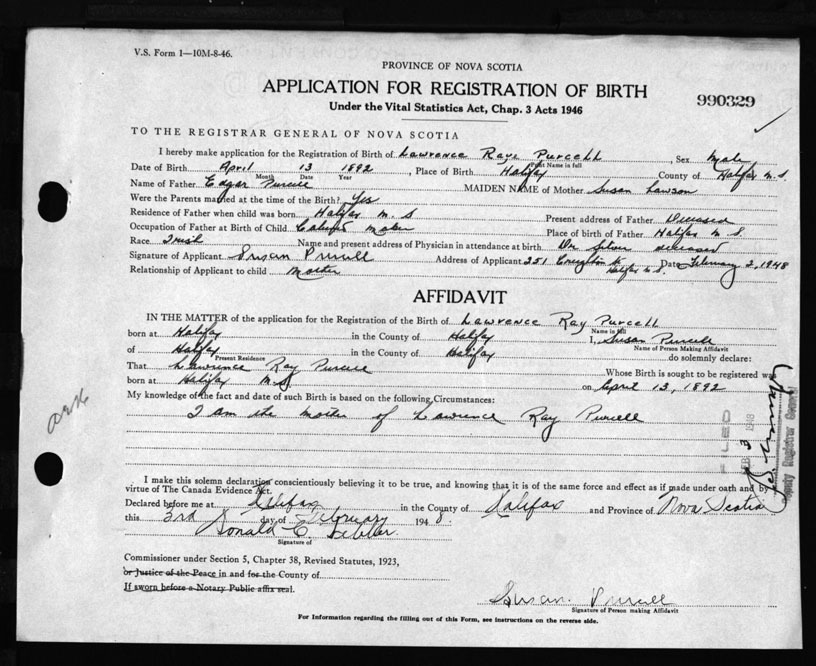 V.S. Form 1—10M-8-46.
PROVINCE OF NOVA SCOTIA
APPLICATION FOR REGISTRATION OF BIRTH
990329
Under the Vital Statistics Act, Chap. 3 Acts 1946
TO THE REGISTRAR GENERAL OF NOVA SCOTIA
I hereby make application for the Registration of Birth of Lawrence Raye Purcell, Sex Male
Print Name in full
Date of Birth April 13 1892, Place of Birth Halifax County of Halifax N.S.
Month Date Year
Name of Father Edgar Purcell MAIDEN NAME of Mother Susan Lawson
Were the Parents married at the time of the Birth? Yes
Residence of Father when child was born Halifax N.S Present address of Father Deceased
Occupation of Father at Birth of Child Cabinet Maker Place of birth of Father Halifax N S.
Race Irish Name and present address of Physician in attendance at birth Dr. deceased
Signature of Applicant Susan Purcell Address of Applicant 251 Creighton St Halifax N.S. Date February 2, 1948
Relationship of Applicant to child Mother
AFFIDAVIT
IN THE MATTER of the application for the Registration of the Birth of Lawrence Ray Purcell
Name in full
born at Halifax in the County of Halifax I, Susan Purcell
Name of Person Making Affidavit
of Halifax in the County of Halifax do solemnly declare:
Present Residence
That Lawrence Ray Purcell Whose Birth is sought to be registered was
born at Halifax N.S. on April 13, 1892
My knowledge of the fact and date of such Birth is based on the following Circumstances:
I am the mother of Lawrence Ray Purcell
FILED
FEB 3 1948
Deputy Registrar General
I make this solemn declaration conscientiously believing it to be true, and knowing that it is of the same force and effect as if made under oath and by
virtue of The Canada Evidence Act.
Declared before me at Halifax in the County of Halifax and Province of Nova Scotia
this 3rd day of February 1948.
Donald C.
Signature of
Commissioner under Section 5, Chapter 38, Revised Statutes, 1923,
or Justice of the Peace in and for the County of
If sworn before a Notary Public affix seal.
Susan Purcell
Signature of Person making Affidavit
For Information regarding the filling out of this Form, see instructions on the reverse side.